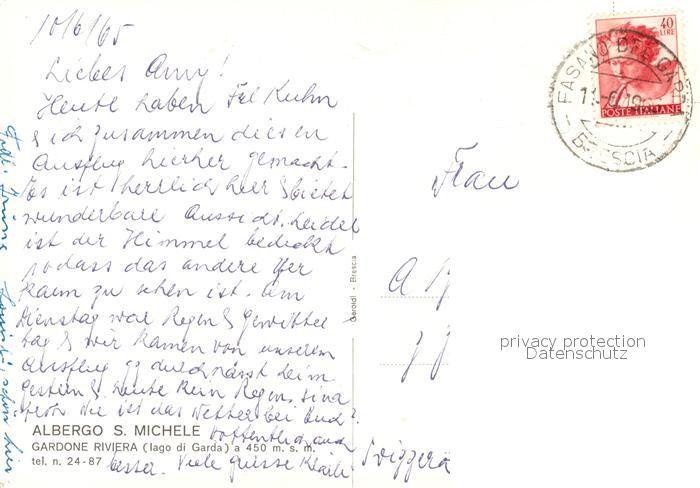 10/6/65
Liebes Anny!
Heute haben Frl Kuhn
& ich zusammen diesen
Ausflug hierher gemacht.
Es ist herrlich hier & bietet
wunderbare Aussicht. Leider
ist der Himmel bedeckt
sodass das andere Ufer
kaum zu sehen ist. Am
Dienstag war Regen & Gewitter
tag & wir kamen von unserem
Ausflug durchnässt heim
gestern & heute kein Regen, sind
froh. Wie ist das Wetter bei Euch?
Hoffentlich auch
besser. Viele Grüsse
ALBERGO S. MICHELE
GARDONE RIVIERA (lago di Garda) a 450 m. s. m.
tel. n. 24-87
Garoldi - Brescia
40
LIRE
POSTE ITALIANE
FASANO DEL GARDA
BRESCIA
Frau
Svizzera
privacy protection
Datenschutz